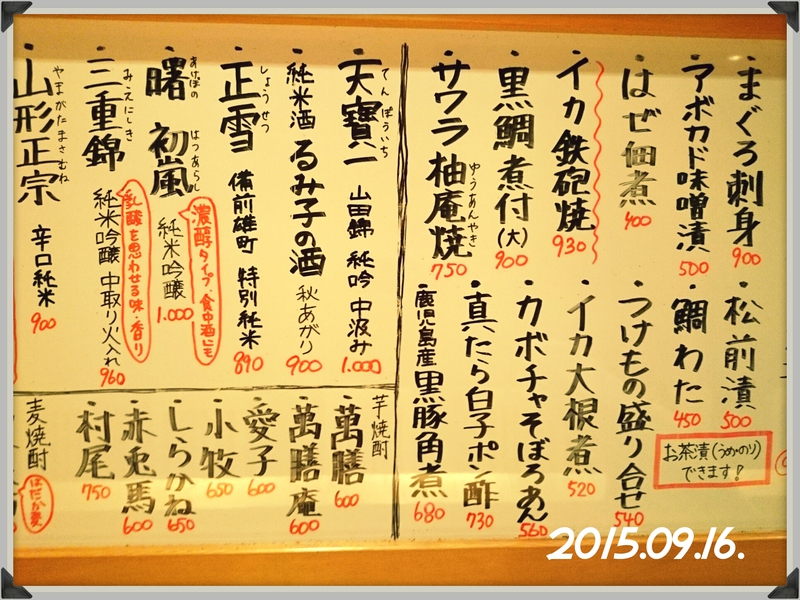 まぐろ刺身 900
アボカド味噌漬 500
はぜ佃煮 400
イカ鉄砲焼 930
黒鯛煮付(大) 900
サワラ柚庵焼 750
ゆうあんやき
松前漬 500
鯛わた 450
つけもの盛り合せ 540
イカ大根煮 520
カボチャそぼろあん 560
真たら白子ポン酢 730
鹿児島産黒豚角煮 680
お茶漬(うめのり)
できます!
天寶一 山田錦 純吟 中汲み 1.000
てんぽういち
純米酒 るみ子の酒 秋あがり 900
正雪 備前雄町 特別純米 890
しょうせつ
曙 初嵐 純米吟醸 1.000
あけぼの はつあらし
濃醇タイプ・食中酒にも
三重錦 純米吟醸 中取り火入れ 960
みえにしき
乳酸を思わせる味・香り
山形正宗 辛口純米 900
やまがたまさむね
芋焼酎
萬膳 600
萬膳庵 600
愛子 600
小牧 650
しらかね 650
赤兎馬 600
村尾 750
麦焼酎
はだか麦
2015.09.16.